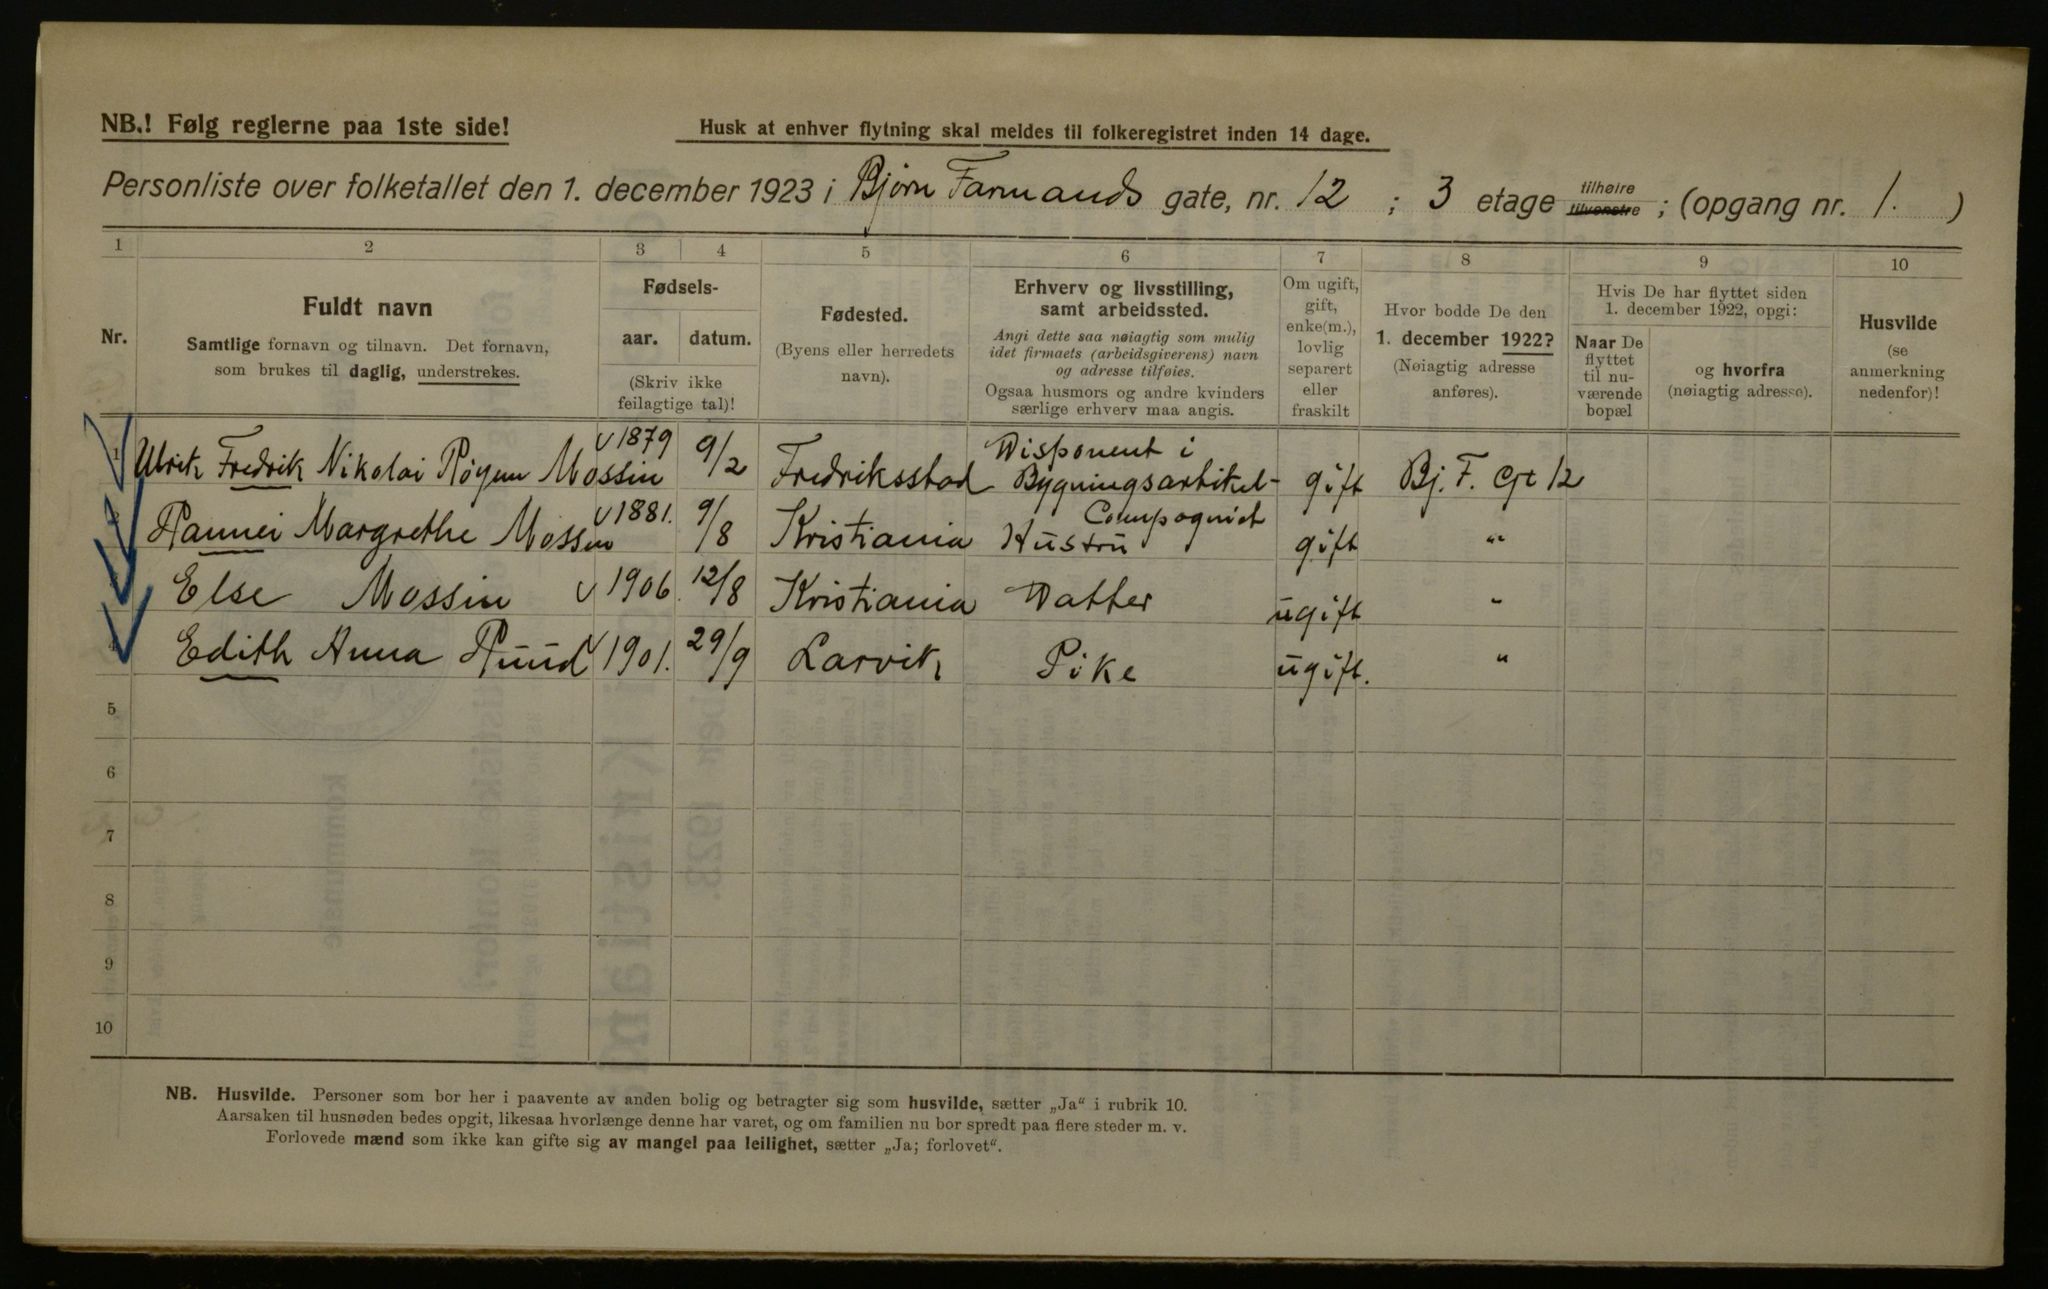 NB.! Følg reglerne paa 1ste side!
Husk at enhver flytning skal meldes til folkeregistret inden 14 dage.
Personliste over folketallet den 1. december 1923 i Bjørn Farmands gate, nr. 12 ; 3 etage tilhøire tilvenstre ; (opgang nr. 1. )
1 2 3 4 5 6 7 8 9 10
Nr.
Fuldt navn
Samtlige fornavn og tilnavn. Det fornavn,
som brukes til daglig, understrekes.
Fødsels-
aar. datum.
(Skriv ikke
feilagtige tal)!
Fødested.
(Byens eller herredets
navn).
Erhverv og livsstilling,
samt arbeidssted.
Angi dette saa nøiagtig som mulig
idet firmaets (arbeidsgiverens) navn
og adresse tilføies.
Ogsaa husmors og andre kvinders
særlige erhverv maa angis.
Om ugift,
gift,
enke(m.),
lovlig
separert
eller
fraskilt
Hvor bodde De den
1. december 1922?
(Nøiagtig adresse
anføres).
Hvis De har flyttet siden
1. december 1922, opgi:
Naar De
flyttet
til nu-
værende
bopæl
og hvorfra
(nøiagtig adresse).
Husvilde
(se
anmerkning
nedenfor)!
1 Ulrik Fredrik Nikolai Røyem Mossin v 1879 9/2 Fredriksstad Disponent i Bygningsartikel- Compagniet gift Bj. F. Gt 12
Rannei Margrethe Mossin v 1881. 9/8 Kristiania Hustru gift "
Else Mossin v 1906. 12/8 Kristiania Datter ugift "
4 Edith Anna Ruud v 1901. 29/9 Larvik Pike ugift. "
5
6
7
8
9
10
NB. Husvilde. Personer som bor her i paavente av anden bolig og betragter sig som husvilde, sætter „Ja“ i rubrik 10.
Aarsaken til husnøden bedes opgit, likesaa hvorlænge denne har varet, og om familien nu bor spredt paa flere steder m. v.
Forlovede mænd som ikke kan gifte sig av mangel paa leilighet, sætter „Ja; forlovet“.